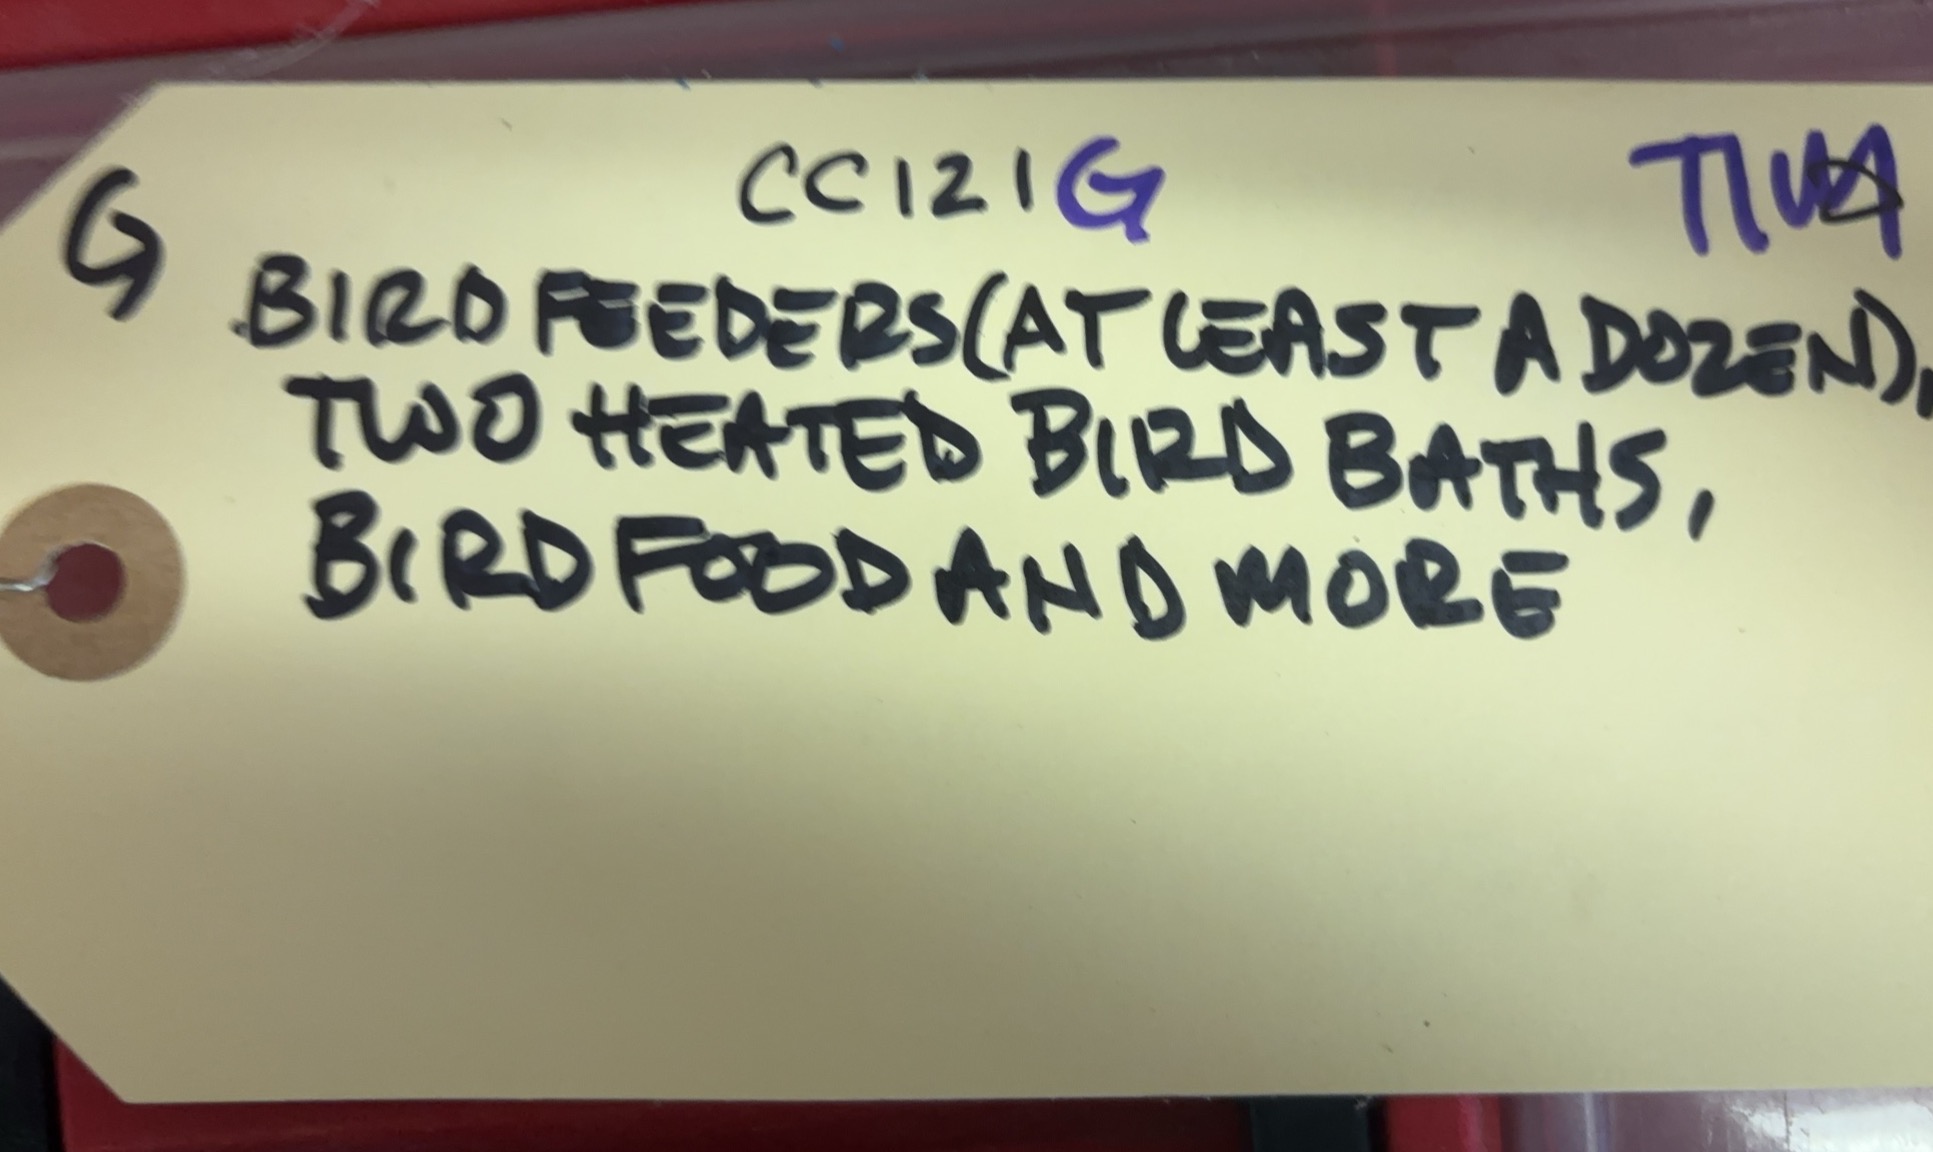 G
CC121G
BIRD FEEDERS (AT LEAST A DOZEN),
TWO HEATED BIRD BATHS,
BIRD FOOD AND MORE